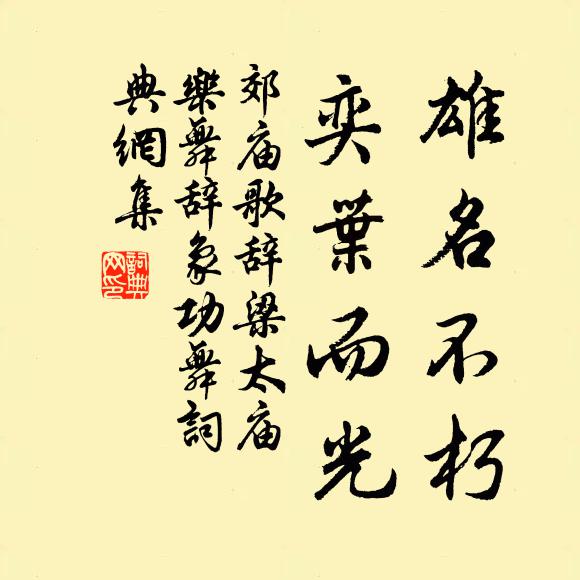 雄名不朽
奕葉而光
郊庙歌辞梁太庙
樂舞辞象功舞詞
典網集
詞典
网印